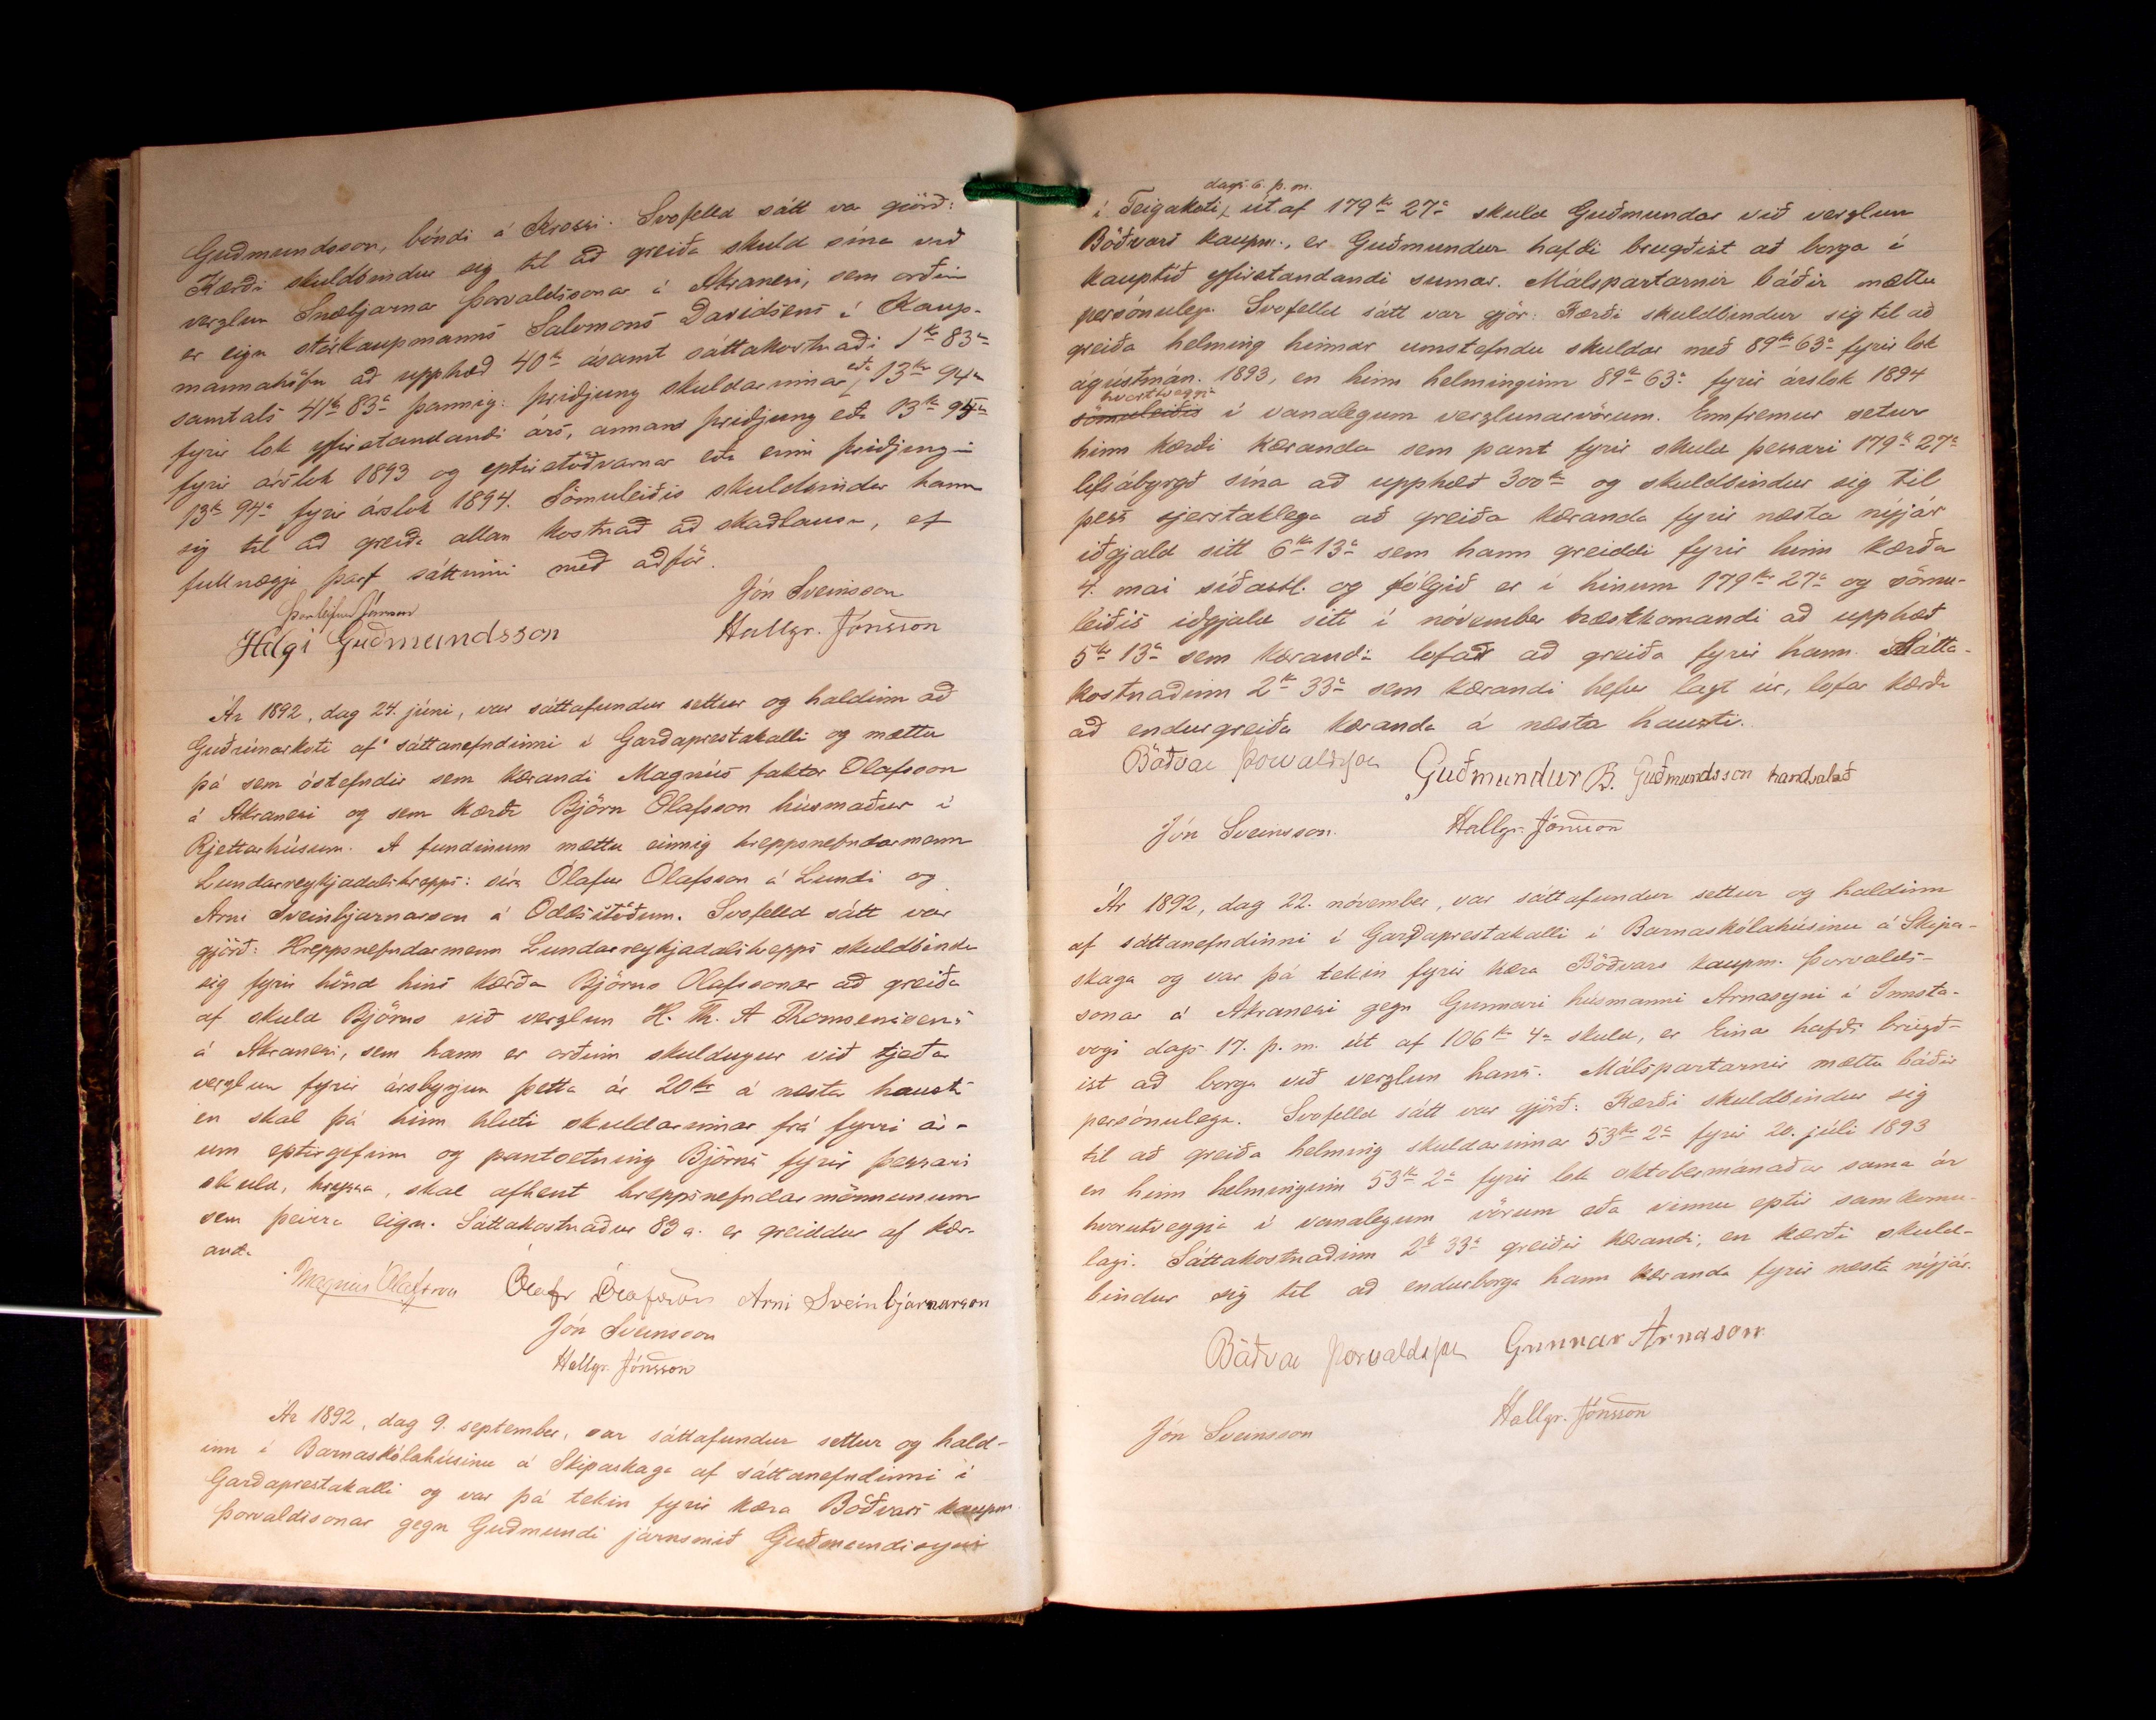 Guðmundsson, bóndi á Krossi. Svofelld sátt var gjörð:
Kærði skuldbindur sig til að greiða skuld sína við
verzlun Snæbjarnar Þorvaldssonar á Akranesi, sem orðin
er eign stórkaupmanns Salomons Davidsens í Kaup-
mannahöfn að upphæð 40 kr ásamt sáttakostnaði 1 kr 83 a
samtals 41 kr 83 a þannig: þriðjung skuldarinnar eða 13 kr 94 a
fyrir lok yfirstandandi árs, annan þriðjung eða 13 kr 95 a
fyrir árslok 1893 og eptirstöðvarnar eða einn þriðjung
13 kr 94 a fyrir árslok 1894. Sömuleiðis skuldbindur hann
sig til að greiða allan kostnað að skaðlausu, ef
fullnægja þarf sáttinni með aðför.
Þorleifur Jónsson Jón Sveinsson
Helgi Guðmundsson Hallgr. Jónsson
Ár 1892, dag 24. júni, var sáttafundur settur og haldinn að
Guðrúnarkoti af sáttanefndinni í Garðaprestakalli og mættu
þá sem óstefndir sem kærandi Magnús faktor Olafsson
á Akranesi og sem kærði Björn Ólafsson húsmaður í
Rjettarhúsum. Á fundinum mættu einnig hreppsnefndarmenn
Lundarreykjadalshrepps: síra Ólafur Ólafsson á Lundi og
Arni Sveinbjarnarson á Oddsstöðum. Svofelld sátt var
gjörð: Hreppsnefndarmenn Lundarreykjadalshrepps skuldbinda
sig fyrir hönd hins kærða Björns Olafssonar að greiða
af skuld Björns við verzlun H. Th. A Thomsensens
á Akranesi, sem hann er orðinn skuldugur við tjeða
verzlun fyrir ársbyrjun þetta ár 20 kr á næsta hausti
en skal þá hinn hluti skuldarinnar frá fyrri ár-
um eptirgefinn og pantsetning Björns fyrir þessari
skuld, hryssa, skal afhent hreppsnefndarmönnunum
sem þeirra eign. Sáttakostnaður 83 a. er greiddur af kær-
anda
Magnús Ólafsson Ólafr Ólafsson Arni Sveinbjarnarson
Jón Sveinsson
Hallgr. Jónsson
Ár 1892, dag 9. september, var sáttafundur settur og hald-
inn í Barnaskólahúsinu á Skipaskaga af sáttanefndinni í
Garðaprestakalli og var þá tekin fyrir kæra Böðvars kaupm.
Þorvaldssonar gegn Guðmundi járnsmið Guðmundssyni
dags. 6. þ. m.
í Teigakoti, út af 179 kr 27 a skuld Guðmundar við verzlun
Böðvars kaupm., er Guðmundur hafði brugðist að borga í
kauptíð yfirstandandi sumar. Málspartarnir báðir mættu
persónuleg. Svofelld sátt var gjör: Kærði skuldbindur sig til að
greiða helming hinnar umstefndu skuldar með 89 kr 63 a fyrir lok
ágústmán. 1893, en hinn helminginn 89 kr 63 a fyrir árslok 1894
hvortveggja
sömuleiðis í vanalegum verzlunarvörum. Ennfremur setur
hinn kærði kæranda sem pant fyrir skuld þessari 179 kr 27 a
lífsábyrgð sína að upphæð 300 kr og skuldbindur sig til
þess sjerstaklega að greiða kæranda fyrir næsta nýjár
iðgjald sitt 6 kr 13 a sem hann greiddi fyrir hinn kærða
4. mai síðastl. og fólgið er í hinum 179 kr 27 a og sömu-
leiðis iðgjald sitt í nóvember næstkomandi að upphæð
5 kr 13 a sem kærandi lofar að greiða fyrir hann. Sátta-
kostnaðinn 2 kr 33 a sem kærandi hefur lagt út, lofar kærði
að endurgreiða kæranda á næsta hausti.
Böðvar Þorvaldsson Guðmundur B. Guðmundsson handsalað
Jón Sveinsson. Hallgr. Jónsson
Ár 1892, dag 22. nóvember, var sáttafundur settur og haldinn
af sáttanefndinni í Garðaprestakalli í Barnaskólahúsinu á Skipa-
skaga og var þá tekin fyrir kæra Böðvars kaupm. Þorvalds-
sonar á Akranesi gegn Gunnari húsmanni Arnasyni í Innsta-
vogi dags. 17. þ. m. út af 106 kr 4 a skuld, er Einar hafði brugð-
ist að borga við verzlun hans. Málspartarnir mættu báðir
persónulega. Svofelld sátt var gjörð: Kærði skuldbindur sig
til að greiða helming skuldarinnar 53 kr 2 a fyrir 20. júli 1893
en hinn helminginn 53 kr 2 a fyrir lok oktobermánaðar sama ár
hvorutveggja í vanalegum vörum eða vinnu eptir samkomu-
lagi. Sáttakostnaðinn 2 kr 33 a greiðir kærandi, en kærði skuld-
bindur sig til að endurborga hann kæranda fyrir næsta nýjár.
Böðvar Þorvaldsson Gunnar Arnason
Jón Sveinsson Hallgr. Jónsson